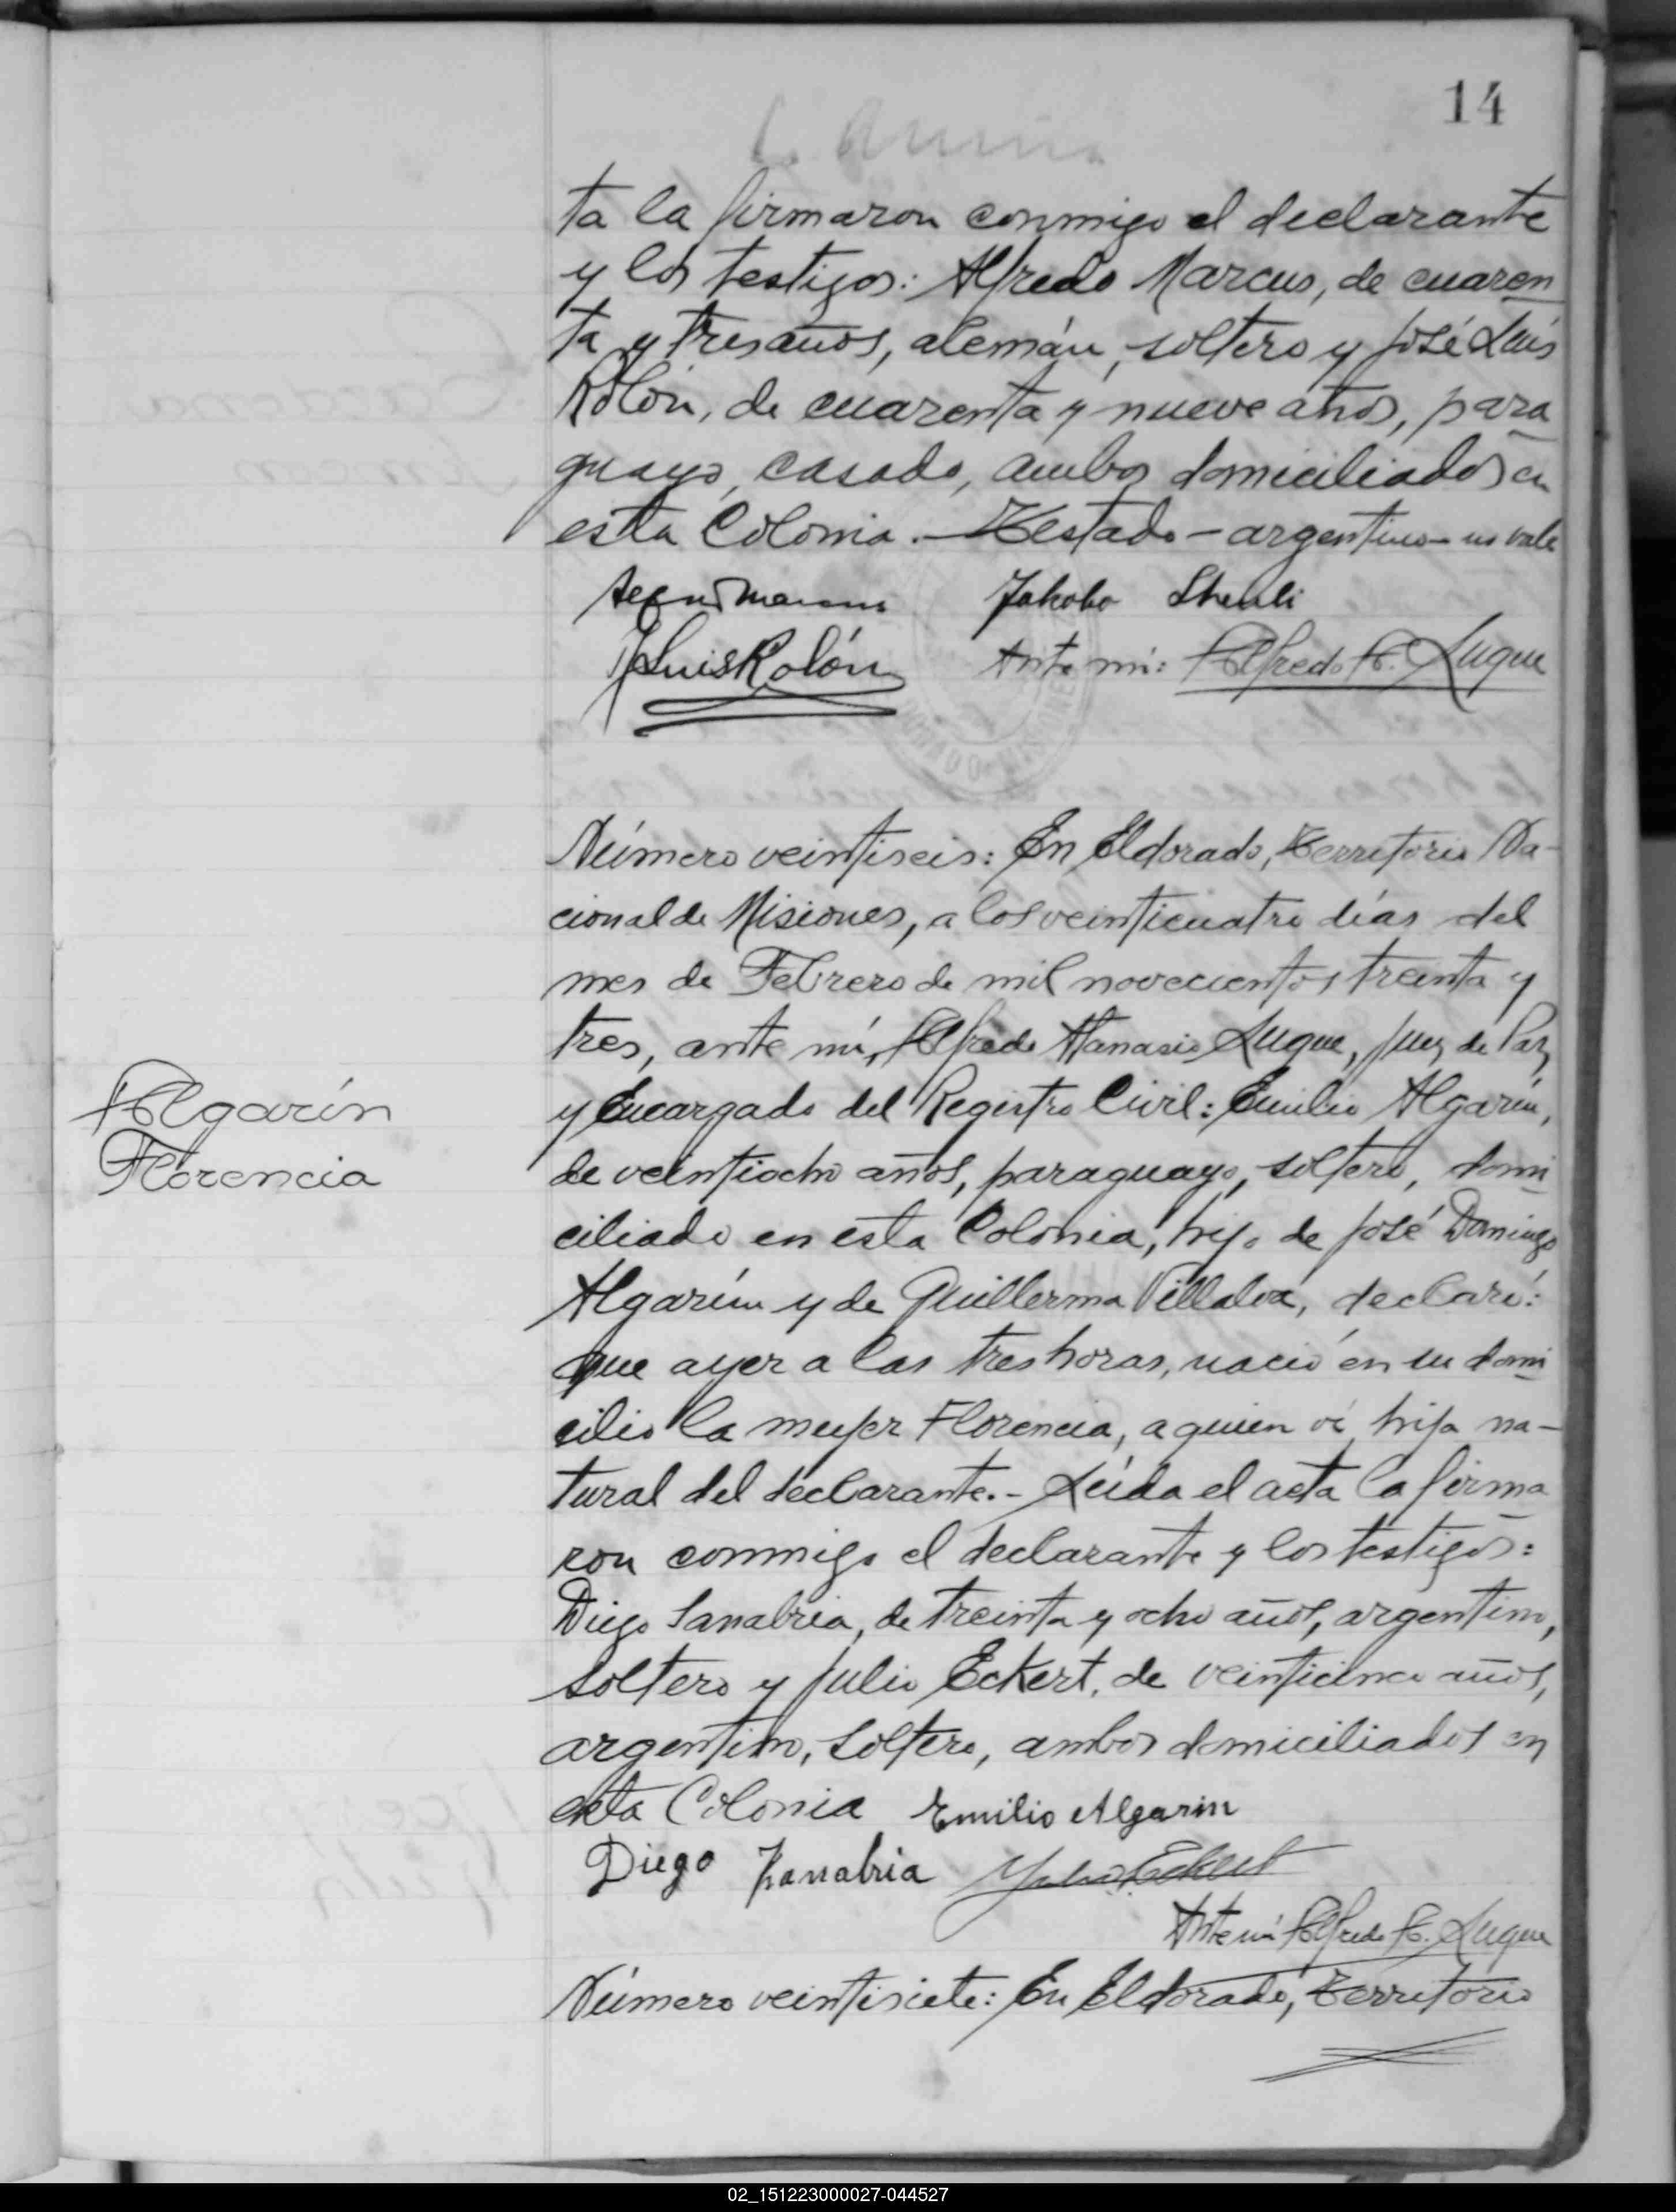 14
ta la firmaron conmigo el declarante
y los testigos: Alfredo Marcus, de cuaren
ta y tres años, alemán, soltero y José Luís
Rolón, de cuarenta y nueve años, para
guayo, casado, ambos domiciliados en
esta Colonia.- Testado - argentino - no vale
Jakobo
JLuis Rolón Ante mí: Alfredo A. Luque
Número veintiseis: En Eldorado, Territorio Na-
cional de Misiones, a los veinticuatro días del
mes de Febrero de mil novecientos treinta y
tres, ante mí, Alfredo Atanasio Luque, Juez de Paz
y Encargado del Registro Civil: Emilio Algarín,
de veintiocho años, paraguayo, soltero, domi
ciliado en esta Colonia, hijo de José Domingo
Algarín y de Guillerma Villalva, declaró:
que ayer a las tres horas, nació en su domi
cilio la mujer Florencia, a quien ví, hija na-
tural del declarante.- Leída el acta la firma
ron conmigo el declarante y los testigos:
Diego Sanabria, de treinta y ocho años, argentino,
soltero y Julio Eckert, de veinticinco años,
argentino, soltero, ambos domiciliados en
esta Colonia Emilio Algarin
Diego Sanabria Julio Eckert
Ante mí Alfredo A. Luque
Número veintisiete: En Eldorado, Territorio
Algarín
Florencia
02_151223000027-044527